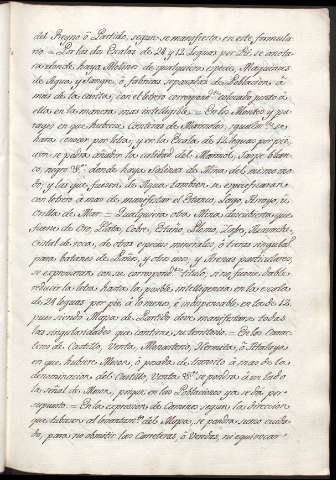 del Reyno ó Partido, segun se manifiesta en este formula-
rio. = Por las dos Escalas de 24 y 12 leguas por pié, se anota-
ra donde haya Molinos de qualquiera especie, Maquinas
de Agua, y Sangre, ó fabricas separadas de Poblacion, á
mas de la casita, con el letrero correspond.te colocado junto á
ella en la manera mas inteligible. = En los Montes y pa-
rages en que hubiese Canteras de Marmoles, igualm.te se
hara conocer por letra, y en la Escala de 12 leguas por pié,
se podra añadir la calidad del Marmol, Jaspe blan-
co, negro &.a donde haya Salinas de Mina del mismo mo-
do, y las que fuesen de Agua tambien se especificaran
con letrero á mas de manifestar el Estanco, Lago, Arroyo, ú
orilla de Mar. = Qualquiera otra Mina descubierta que
fuese de Oro, Plata, Cobre, Estaño, Plomo,
cristal de roca, de otras especies minerales, ó tierras singulares
para batanes de Paños, y otro uso, y Arenas particulares,
se expresaran con su correspond.te titulo; si no fuese dable
reducir la letra hasta la posible inteligencia en la escala
de 24 leguas por pié, á lo menos, é indispensable en los de 12,
pues siendo Mapa de Partido deve manifestar todas
las singularidades que contiene su territorio. = En los Carac-
teres de Castillo, Venta, Monasterio, Hermita, ó Atalaya
en que hubiere Meson, ó posada de transito á mas de la
denominacion del Castillo, Venta &.a se pondra á un lado
la señal de Meson, porque en las Poblaciones ya se da por
supuesto. = En la expresion de Caminos segun la direccion
que deducen al levantam.to del Mapa, se pondra sumo cuida-
do, para no omitir las Carreteras, ó Veredas, ni equivocar